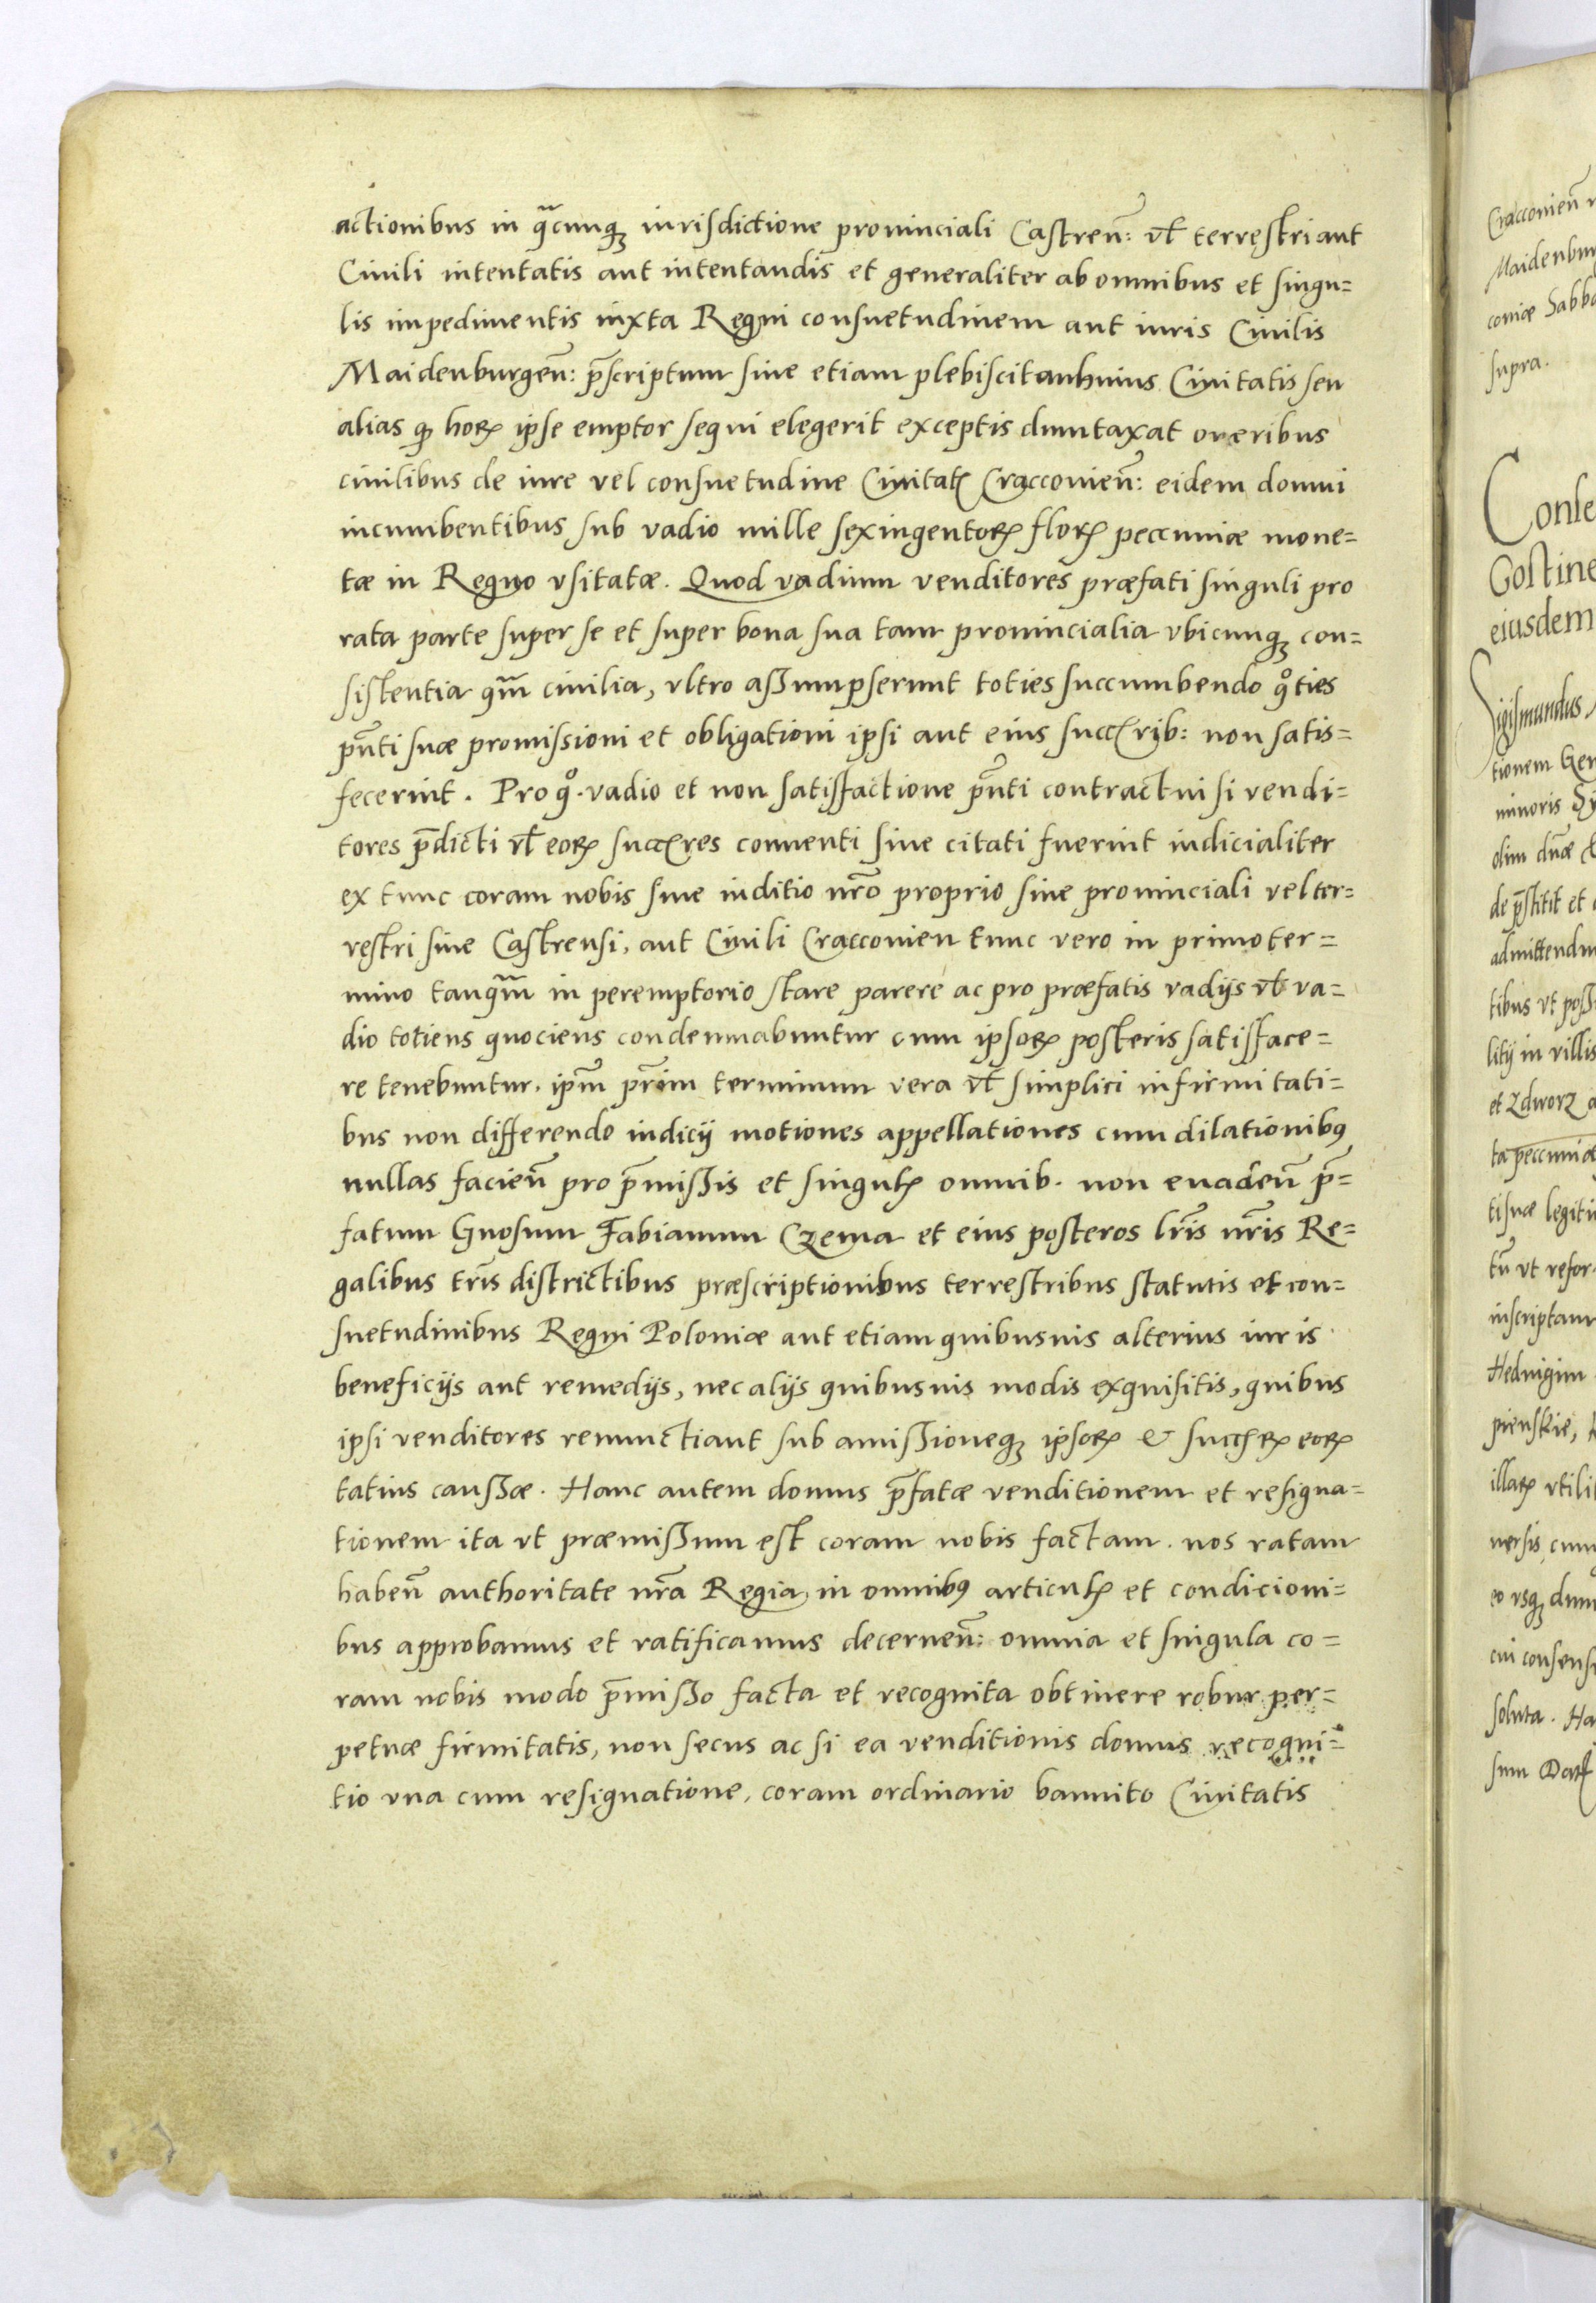 actionibus in qãcunqꝫ iurisdictione prouinciali Castren̄: vł terrestri aut
Ciuili intentatis aut intentandis et generaliter ab omnibus et singu=
lis impedimentis iuxta Regni consuetudinem aut iuris Ciuilis
Maidenburgen̄: p̄scriptum siue etiam plebiscitum huius Ciuitatis seu
alias qꝫ horꝝ ipse emptor sequi elegerit exceptis dumtaxat oneribus
ciuilibus de iure vel consuetudine Ciuitatꝭ Cracconien̄: eidem domui
incumbentibus sub vadio mille sexingentorꝝ florꝝ peccuniæ mone=
tæ in Regno vsitatæ. Quod vadium venditores præfati singuli pro
rata parte super se et super bona sua tam prouincialia vbicunqꝫ con=
sistentia qm̄ ciuilia, vltro aßumpserunt toties succumbendo qͦties
pn̄ti suæ promissioni et obligationi ipsi aut eius succꝭrib: non satis=
fecerint. Pro qͦ. vadio et non satisfactione pn̄ti contractui si vendi=
tores p̄dicti vł eorꝝ succꝭres conuenti siue citati fuerint iudicialiter
ex tunc coram nobis siue iuditio nr̄o proprio siue prouinciali vel ter=
restri siue Castrensi, aut Ciuili Cracconien tunc vero in primo ter=
mino tanqm̄ in peremptorio stare parere ac pro præfatis vadijs vł va=
dio totiens quociens condemnabuntur cum ipsorꝝ posteris satisface=
re tenebuntur. ipm̄ pr̄im terminum vera vł simplici infirmitati=
bus non differendo iudicij motiones appellationes cum dilationibꝰ
nullas facien̄ pro p̄mißis et singulꝭ omnib. non euaden̄ p̄=
fatum Gnosum Fabianum Czema et eius posteros lr̄is nr̄is Re=
galibus tr̄is districtibus præscriptionibus terrestribus statutis et con=
suetudinibus Regni Poloniæ aut etiam quibusuis alterius iuris
beneficijs aut remedijs, nec alijs quibusuis modis exquisitis, quibus
ipsi venditores renunctiant sub amißioneqꝫ ipsorꝝ & succꝭrꝝ eorꝝ
tatius caußæ. Hanc autem domus p̄fatæ venditionem et resigna=
tionem ita vt præmißum est coram nobis factam. nos ratam
haben̄ authoritate nr̄a Regia, in omnibꝰ articulꝭ et condicioni=
bus approbamus et ratificamus decernen̄: omnia et singula co=
ram nobis modo p̄mißo facta et recognita obtinere robur per=
petuæ firmitatis, non secus ac si ea venditionis domus recogni=
tio vna cum resignatione, coram ordinario bannito Ciuitatis
Cracconien̄
Maidenbur
coniæ Sabba
supra.
Conse
Gostine
eiusdem
Sigismundus
tionem Gen
minoris
olim dnæ
de p̄stitit et
admittendu
tibus vt poß
litij in villis
et Zdworz
ta peccuniæ
ti suæ legiti
tu vt refor
inscriptam
Heduigim
pienskie,
illarꝝ vtili
uersis cum
eo vsqꝫ dum
cui consens
soluta. Ha
sum Datꝭ